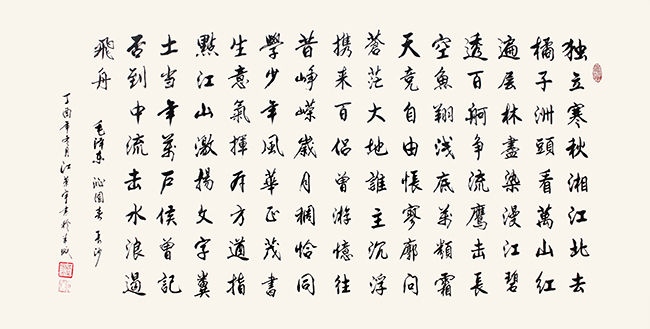 独立寒秋湘江北去
橘子洲頭看萬山红
遍层林盡染漫江碧
透百舸争流鹰击長
空魚翔浅底萬類霜
天竞自由悵寥廓问
蒼茫大地誰主沉浮
携来百侣曾游憶往
昔峥嵘歲月稠恰同
學少年風華正茂書
生意氣揮斥方遒指
點江山激揚文字糞
土当年萬户侯曾記
否到中流击水浪遏
飛舟
毛泽东 沁园春 長沙
丁酉年